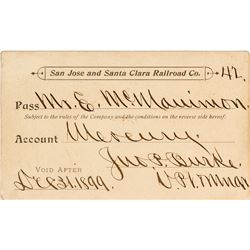 San Jose and Santa Clara Railroad Co. 42.
Pass Mr. E. McManimon
Subject to the rules of the Company and the conditions on the reverse side hereof.
Account Mercury.
Jno. P. Burke
VOID AFTER
Dec 31, 1899. V.P. &